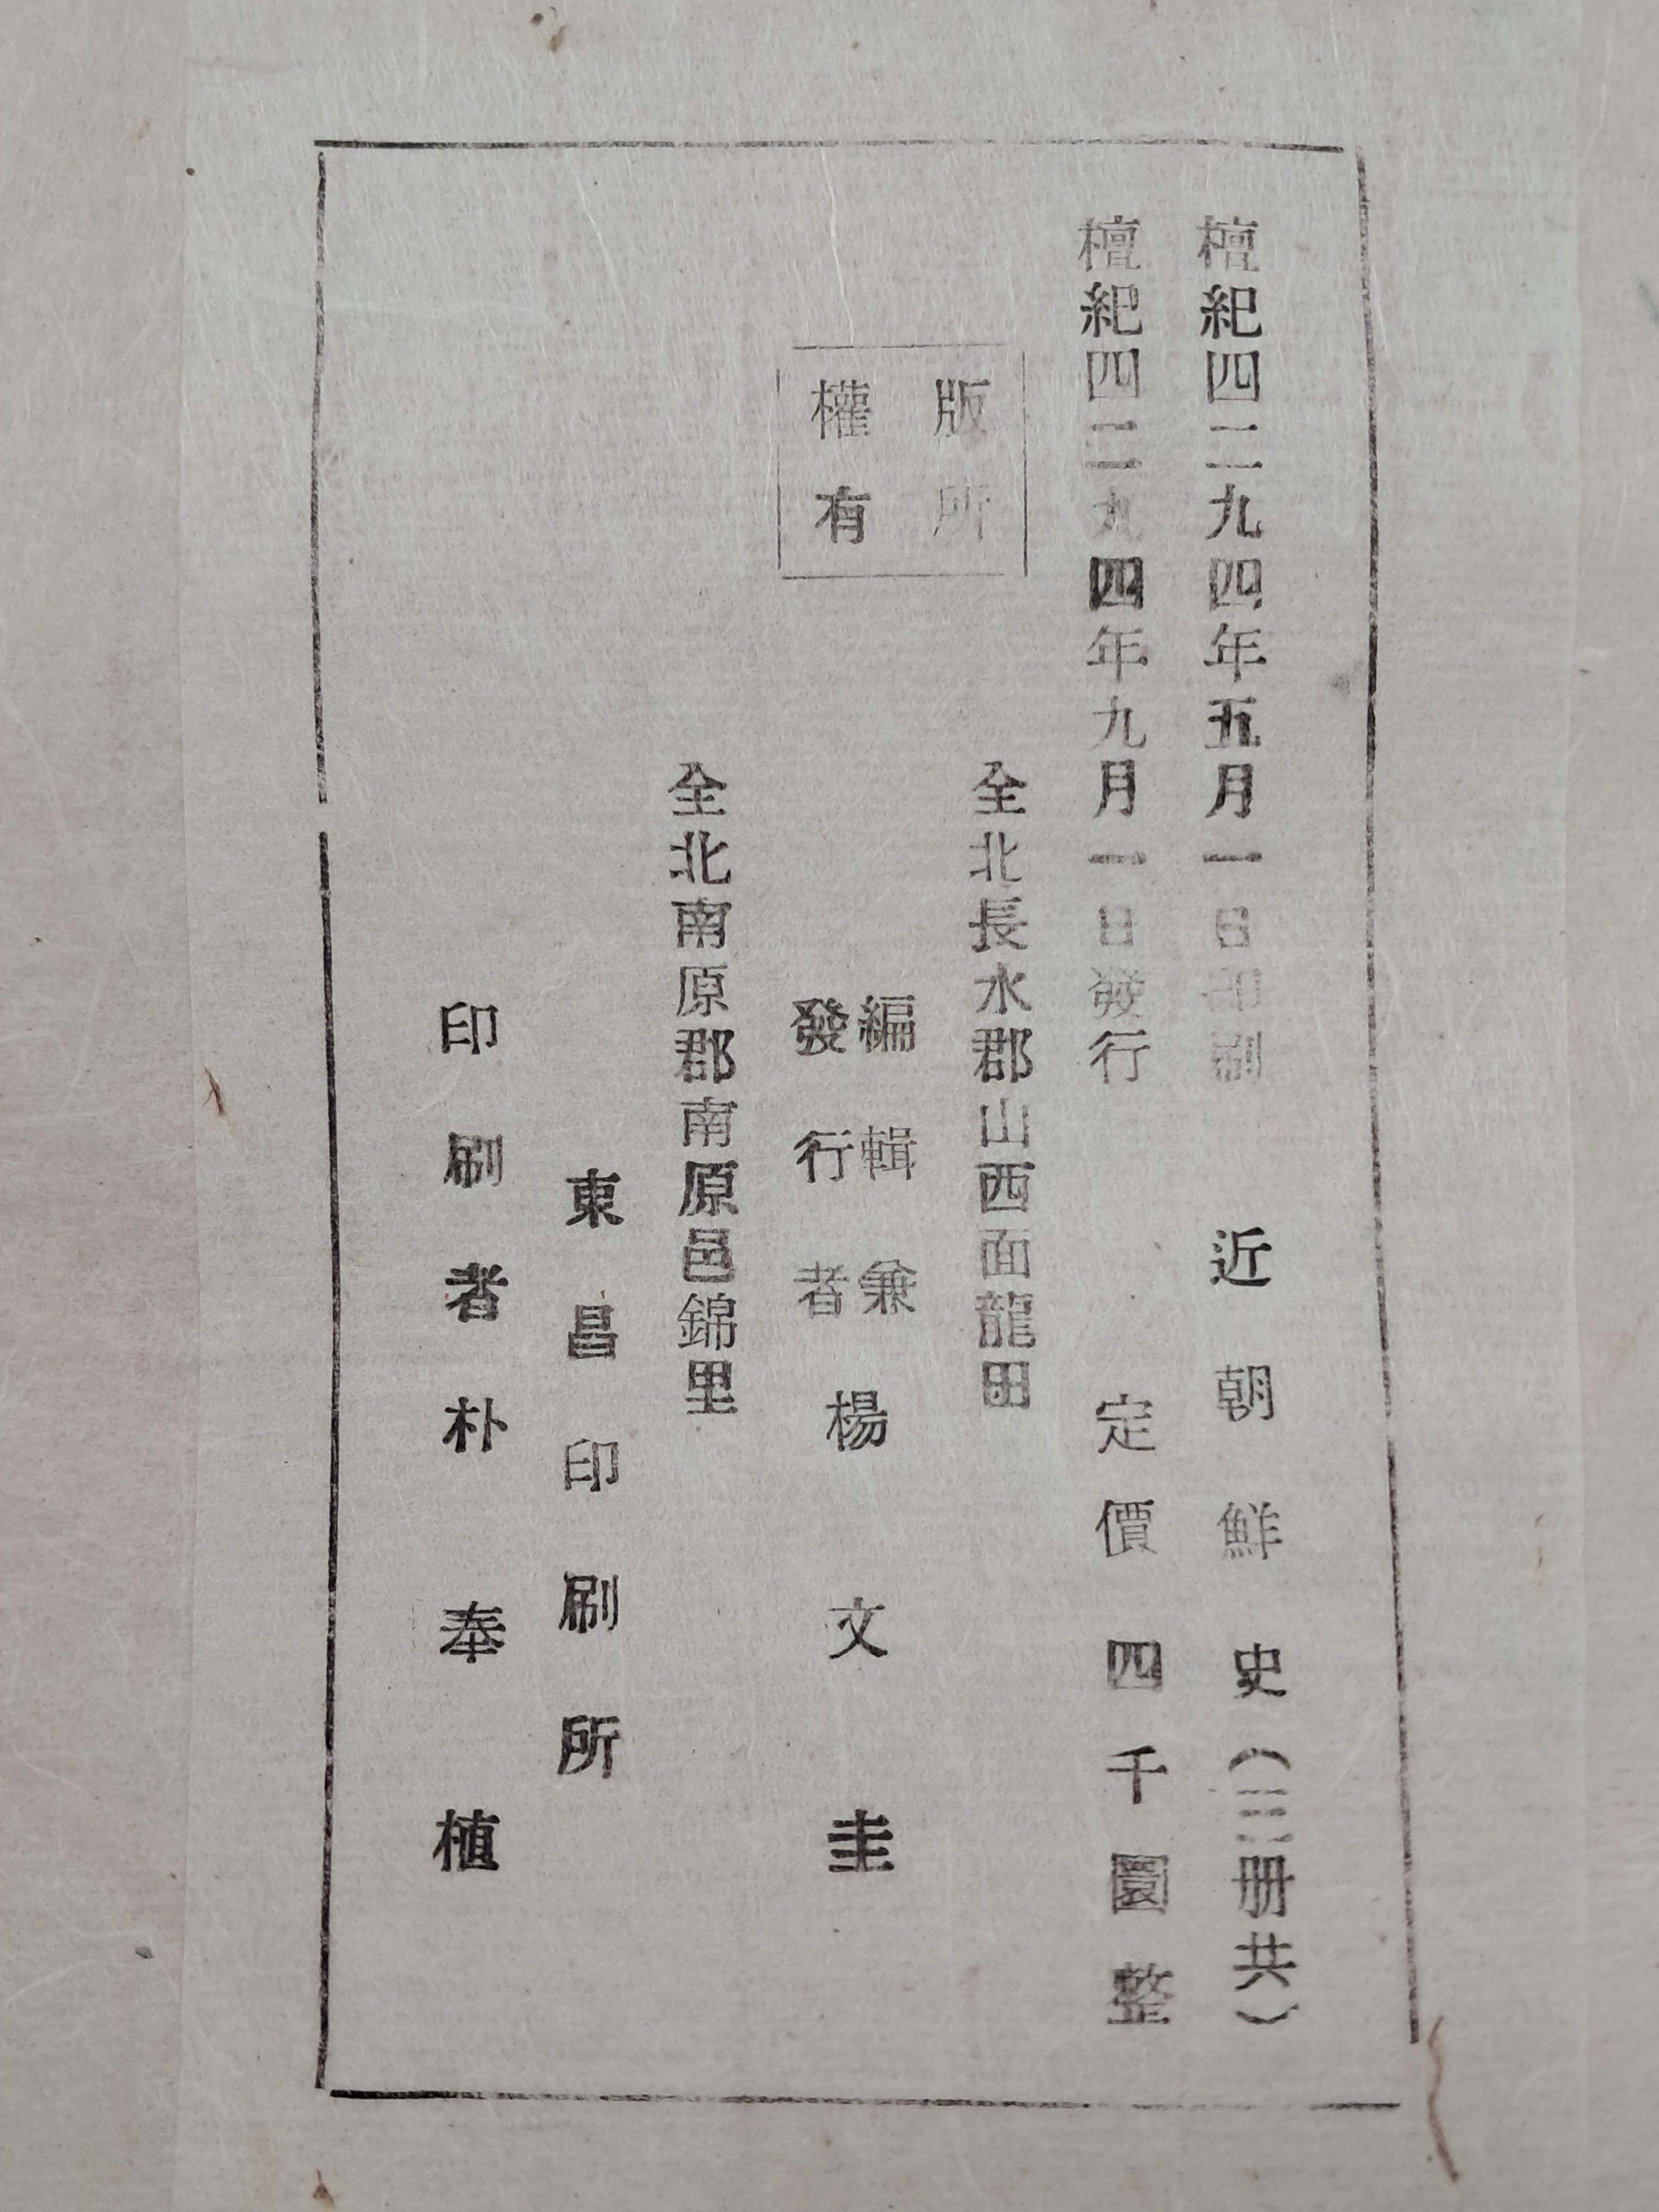 檀紀四二九四年五月一日印刷　近朝鮮史（三册共）
檀紀四二九四年九月一日發行　定價四千圜整
版權所有
全北長水郡山西面龍田
編輯兼發行者　楊文圭
全北南原郡南原邑錦里
東昌印刷所
印刷者　朴奉植